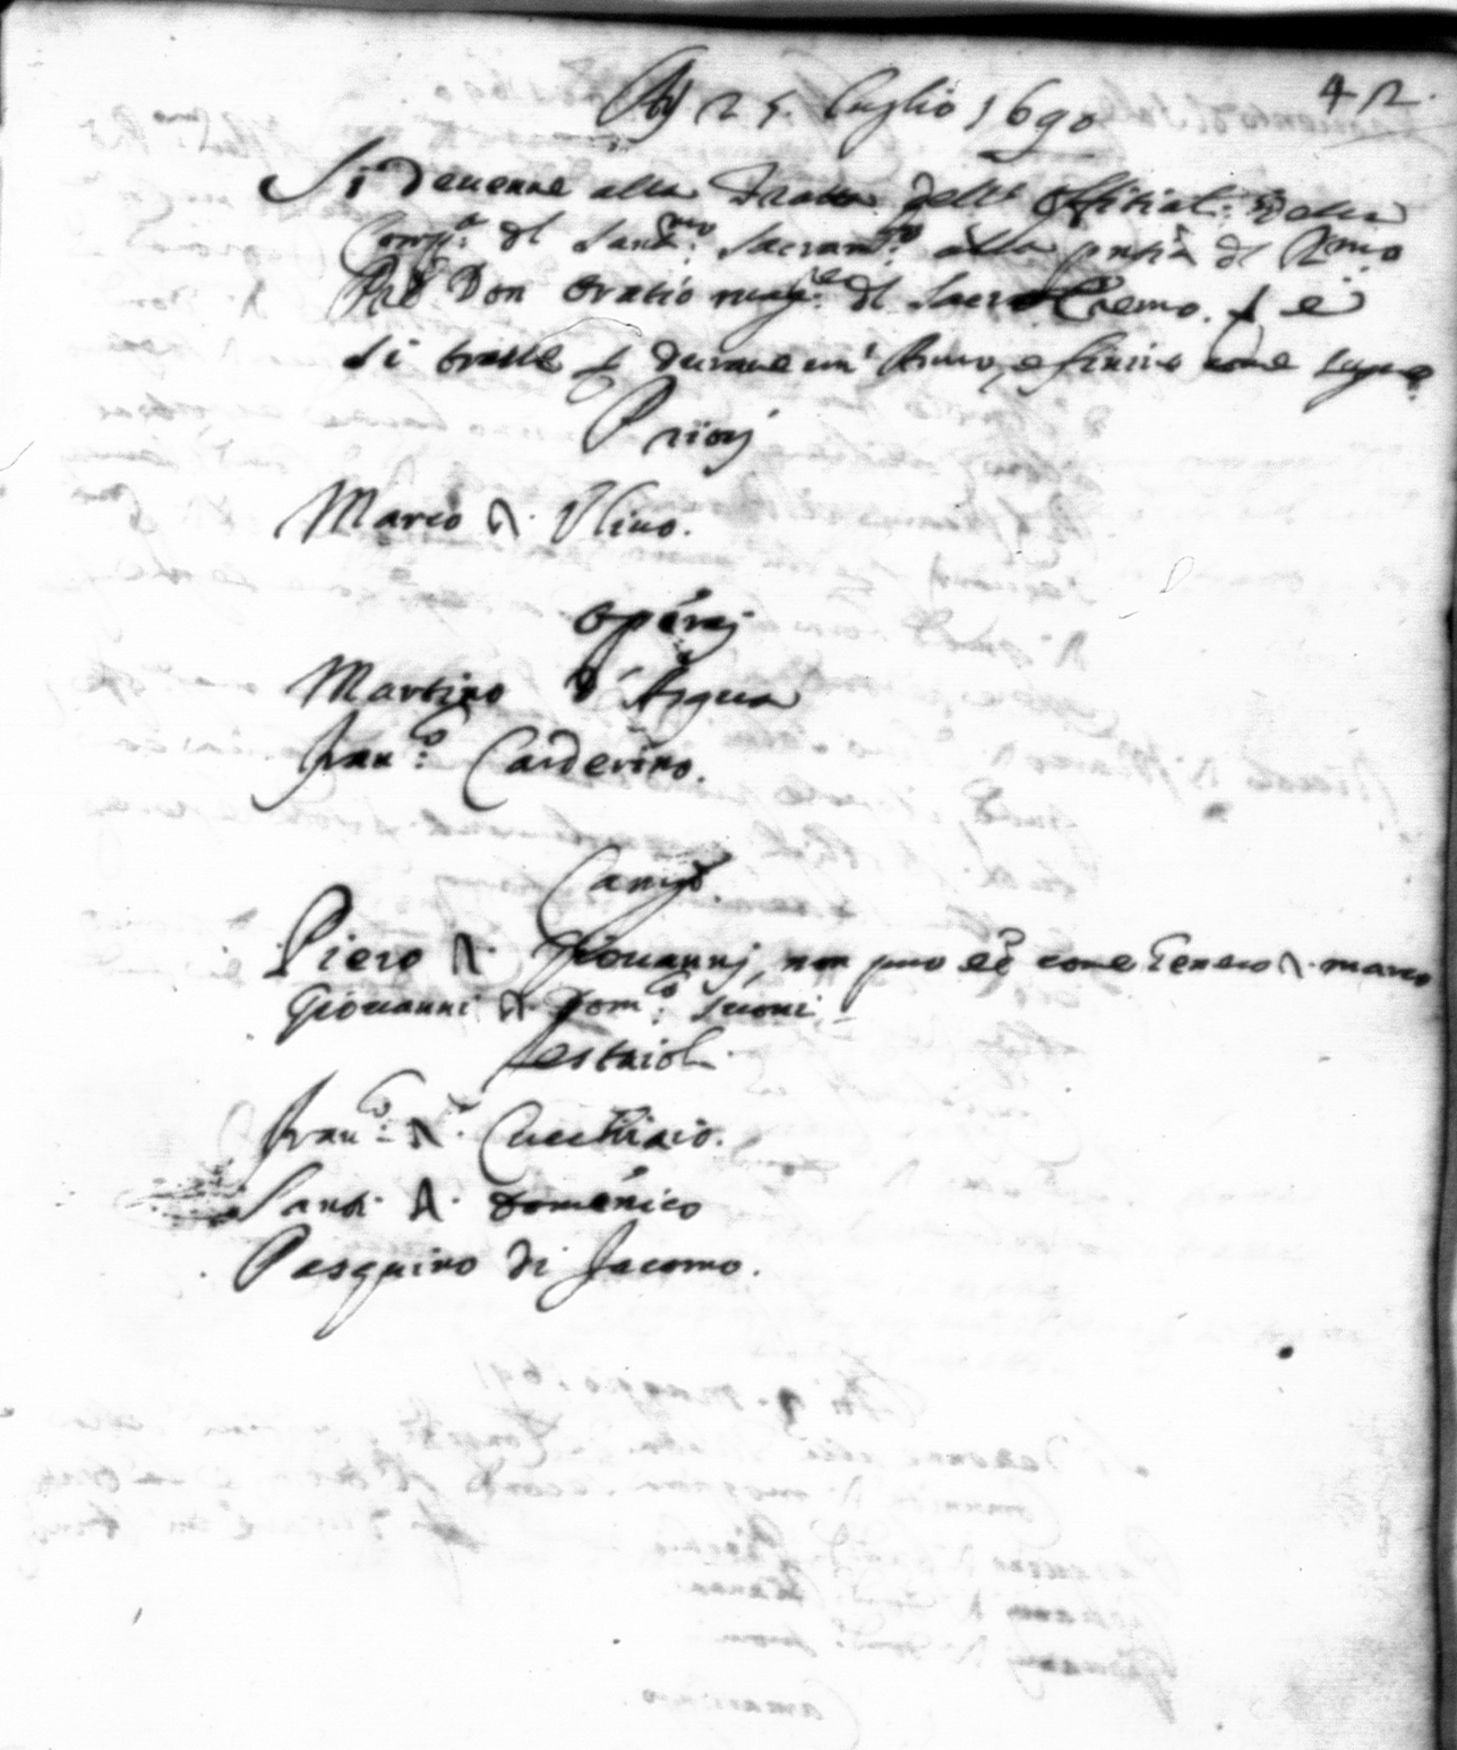 42.
Adj 25. luglio 1690
Si devenne alla Tratta dell' Offitiali della
Comp.a di Sant.mo Sacram.to alla pntia di R.mo
Pre Don Oratio mag.re di Sacro Eremo. e
si trasse durare un' Anno, e finire come segue
Priorj
Marco di Ulivo.
Operaj
Martino d' Argua
Fran.co Carderino.
Camo.
Piero di Giovannj, non puo ee come Genero di marco
Giovanni di Dom.co
Festaioli.
Fran.co di Cucchiaio.
Santi di Domenico
Pasquino di Jacomo.